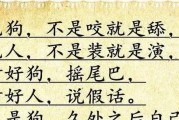 狗，不是咬就是舔，
人，不是装就是演，
好狗，摇尾巴，
好人，说假话。
是狗，久处之后自己